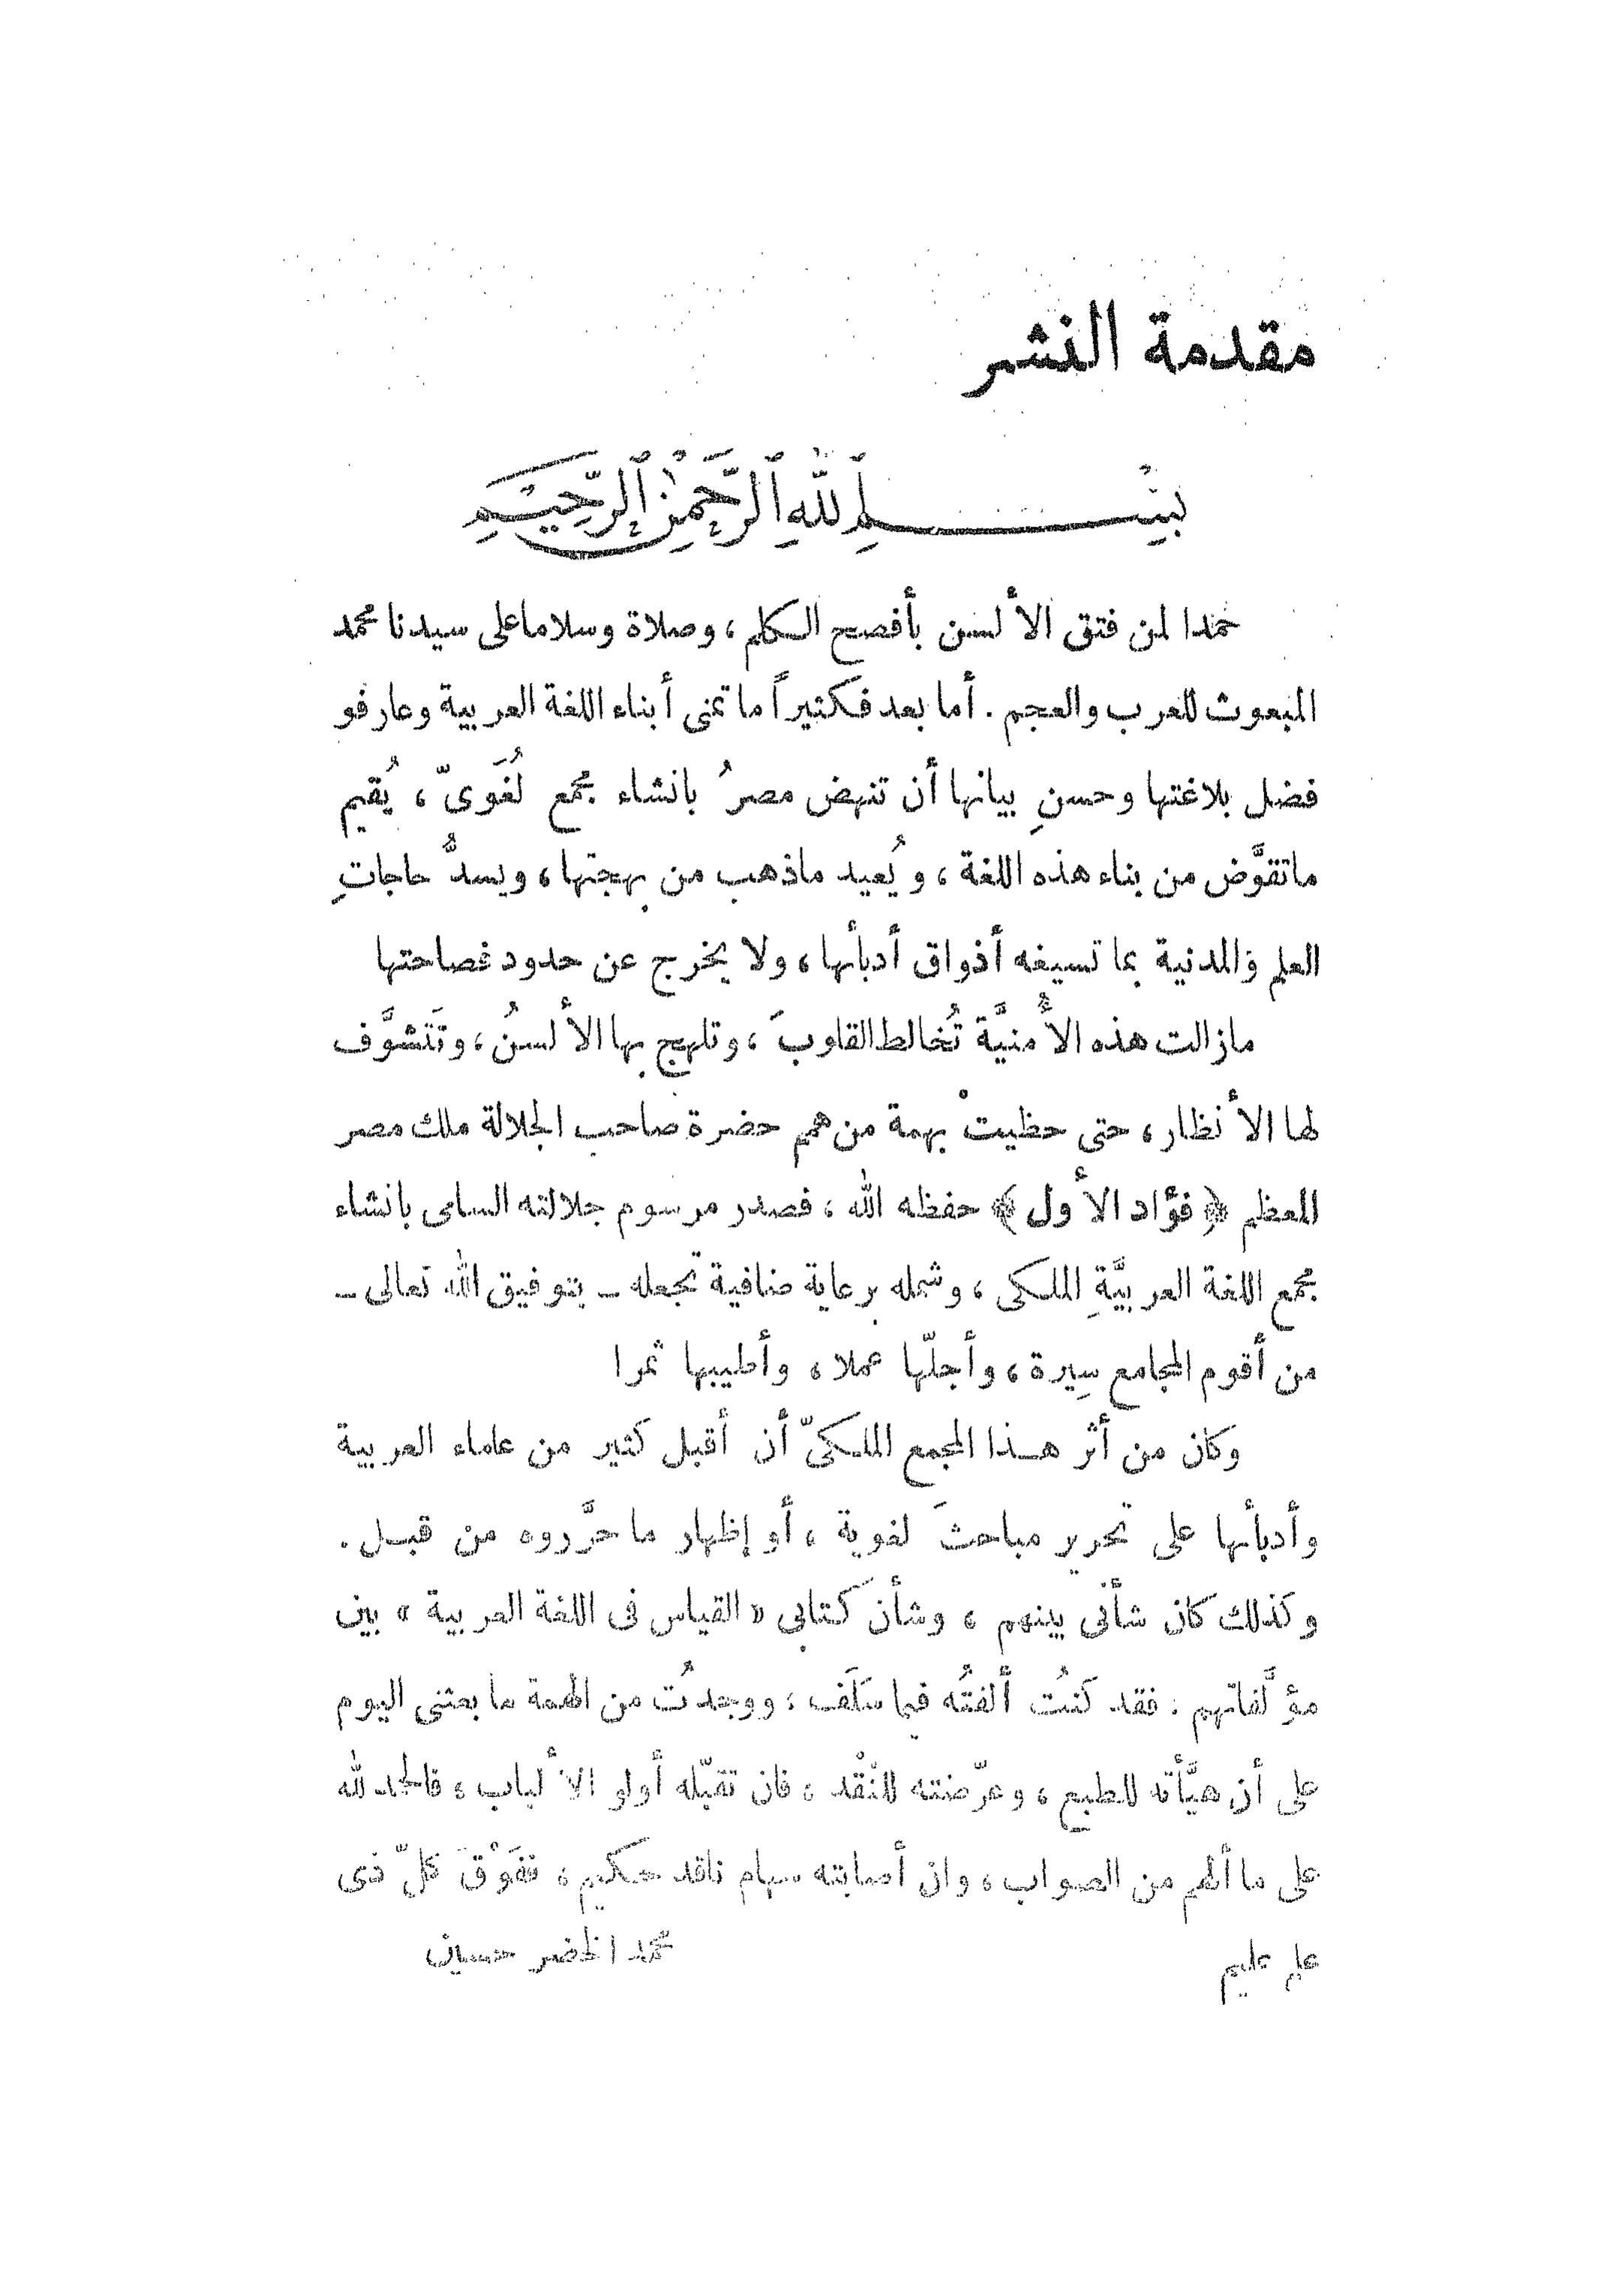 مقدمة النشر
بِسْمِ اللَّهِ الرَّحْمَٰنِ الرَّحِيمِ
حمدا لمن فتق الألسن بأفصح الكلم ، وصلاة وسلاما على سيدنا محمد
المبعوث للعرب والعجم . أما بعد فكثيراً ما تمنى أبناء اللغة العربية وعارفو
فضل بلاغتها وحسنِ بيانها أن تنهض مصرُ بانشاء مجمع لُغَوىّ ، يُقيم
ماتقوَّض من بناء هذه اللغة ، ويُعيد ماذهب من بهجتها ، ويسدُّ حاجاتِ
العلم والمدنية بما تسيغه أذواق أدبأئها ، ولا يخرج عن حدود فصاحتها
مازالت هذه الأُمنيَّة تُخالط القلوبَ ، وتلهج بها الألسنُ ، وتَتَشوَّف
لها الأنظار ، حتى حظيتْ بهمة من همم حضرة صاحب الجلالة ملك مصر
المعظم ﴿ فؤاد الأول ﴾ حفظه الله ، فصدر مرسوم جلالته السامى بانشاء
مجمع اللغة العربيَّةِ الملكى ، وشمله برعاية ضافية تجعله ــ بتوفيق الله تعالى ــ
من أقوم المجامع سِيرة ، وأجلّها عملا ، وأطيبها ثمرا
وكان من أثر هــذا المجمع الملكىّ أن أقبل كثير من علماء العربية
وأدبأئها على تحرير مباحثَ لغوية ، أو إظهار ما حرَّروه من قبـل .
وكذلك كان شأنى بينهم ، وشأن كتابى « القياس فى اللغة العربية » بين
مؤلَّفاتهم : فقد كنتُ ألفتُه فيما سَلَف ، ووجدتُ من الهمة ما بعثنى اليوم
على أن هيَّأته للطبع ، وعرّضته للنقْد ، فان تقبّله أولو الألباب ، فالحمد لله
على ما ألهم من الصواب ، وان أصابته سهام ناقد حكيم ، ففَوْقَ كلّ ذى
علم عليم
محمد الخضر حسين